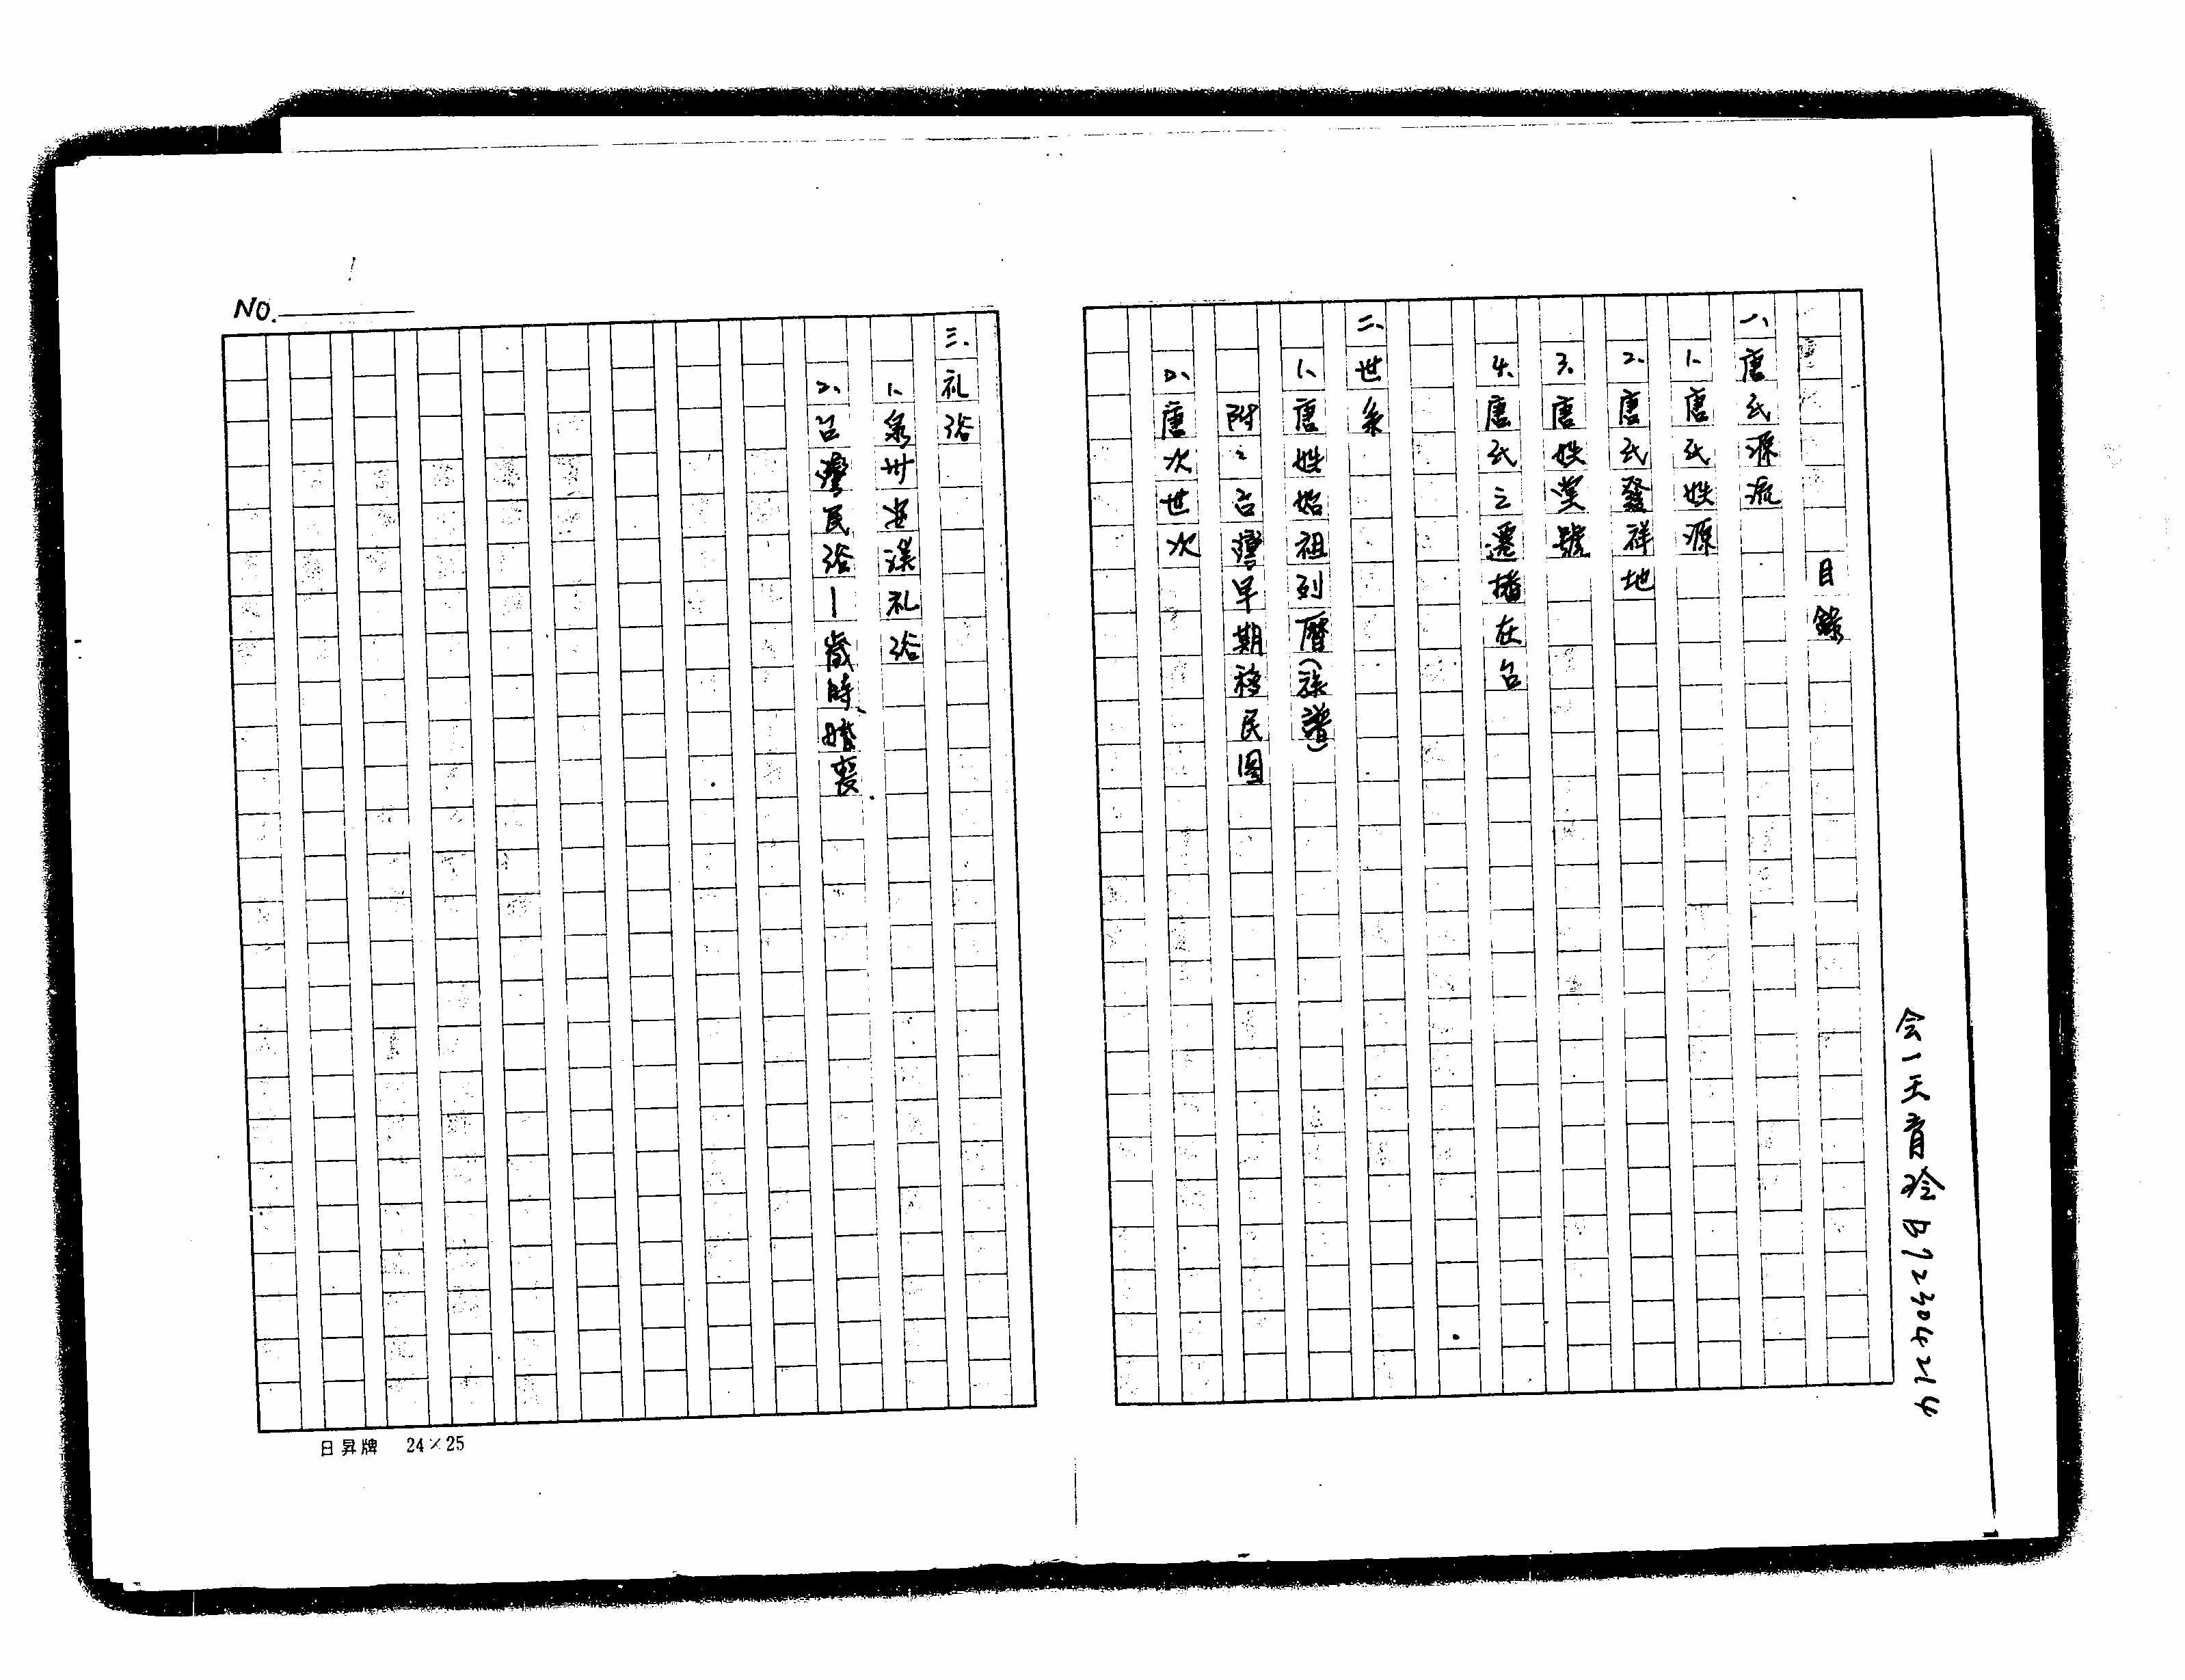 目錄
一、唐氏源流
1、唐氏姓源
2、唐氏發祥地
3、唐姓堂號
4、唐氏之遷播在台
二、世系
1、唐姓始祖列曆(族譜)
附:台灣早期移民圖
2、唐次世次
三.礼俗
1、泉州安溪礼俗
2、台灣民俗—歲時、婚喪.
会一天育玲
NO. 1
日昇牌 24×25